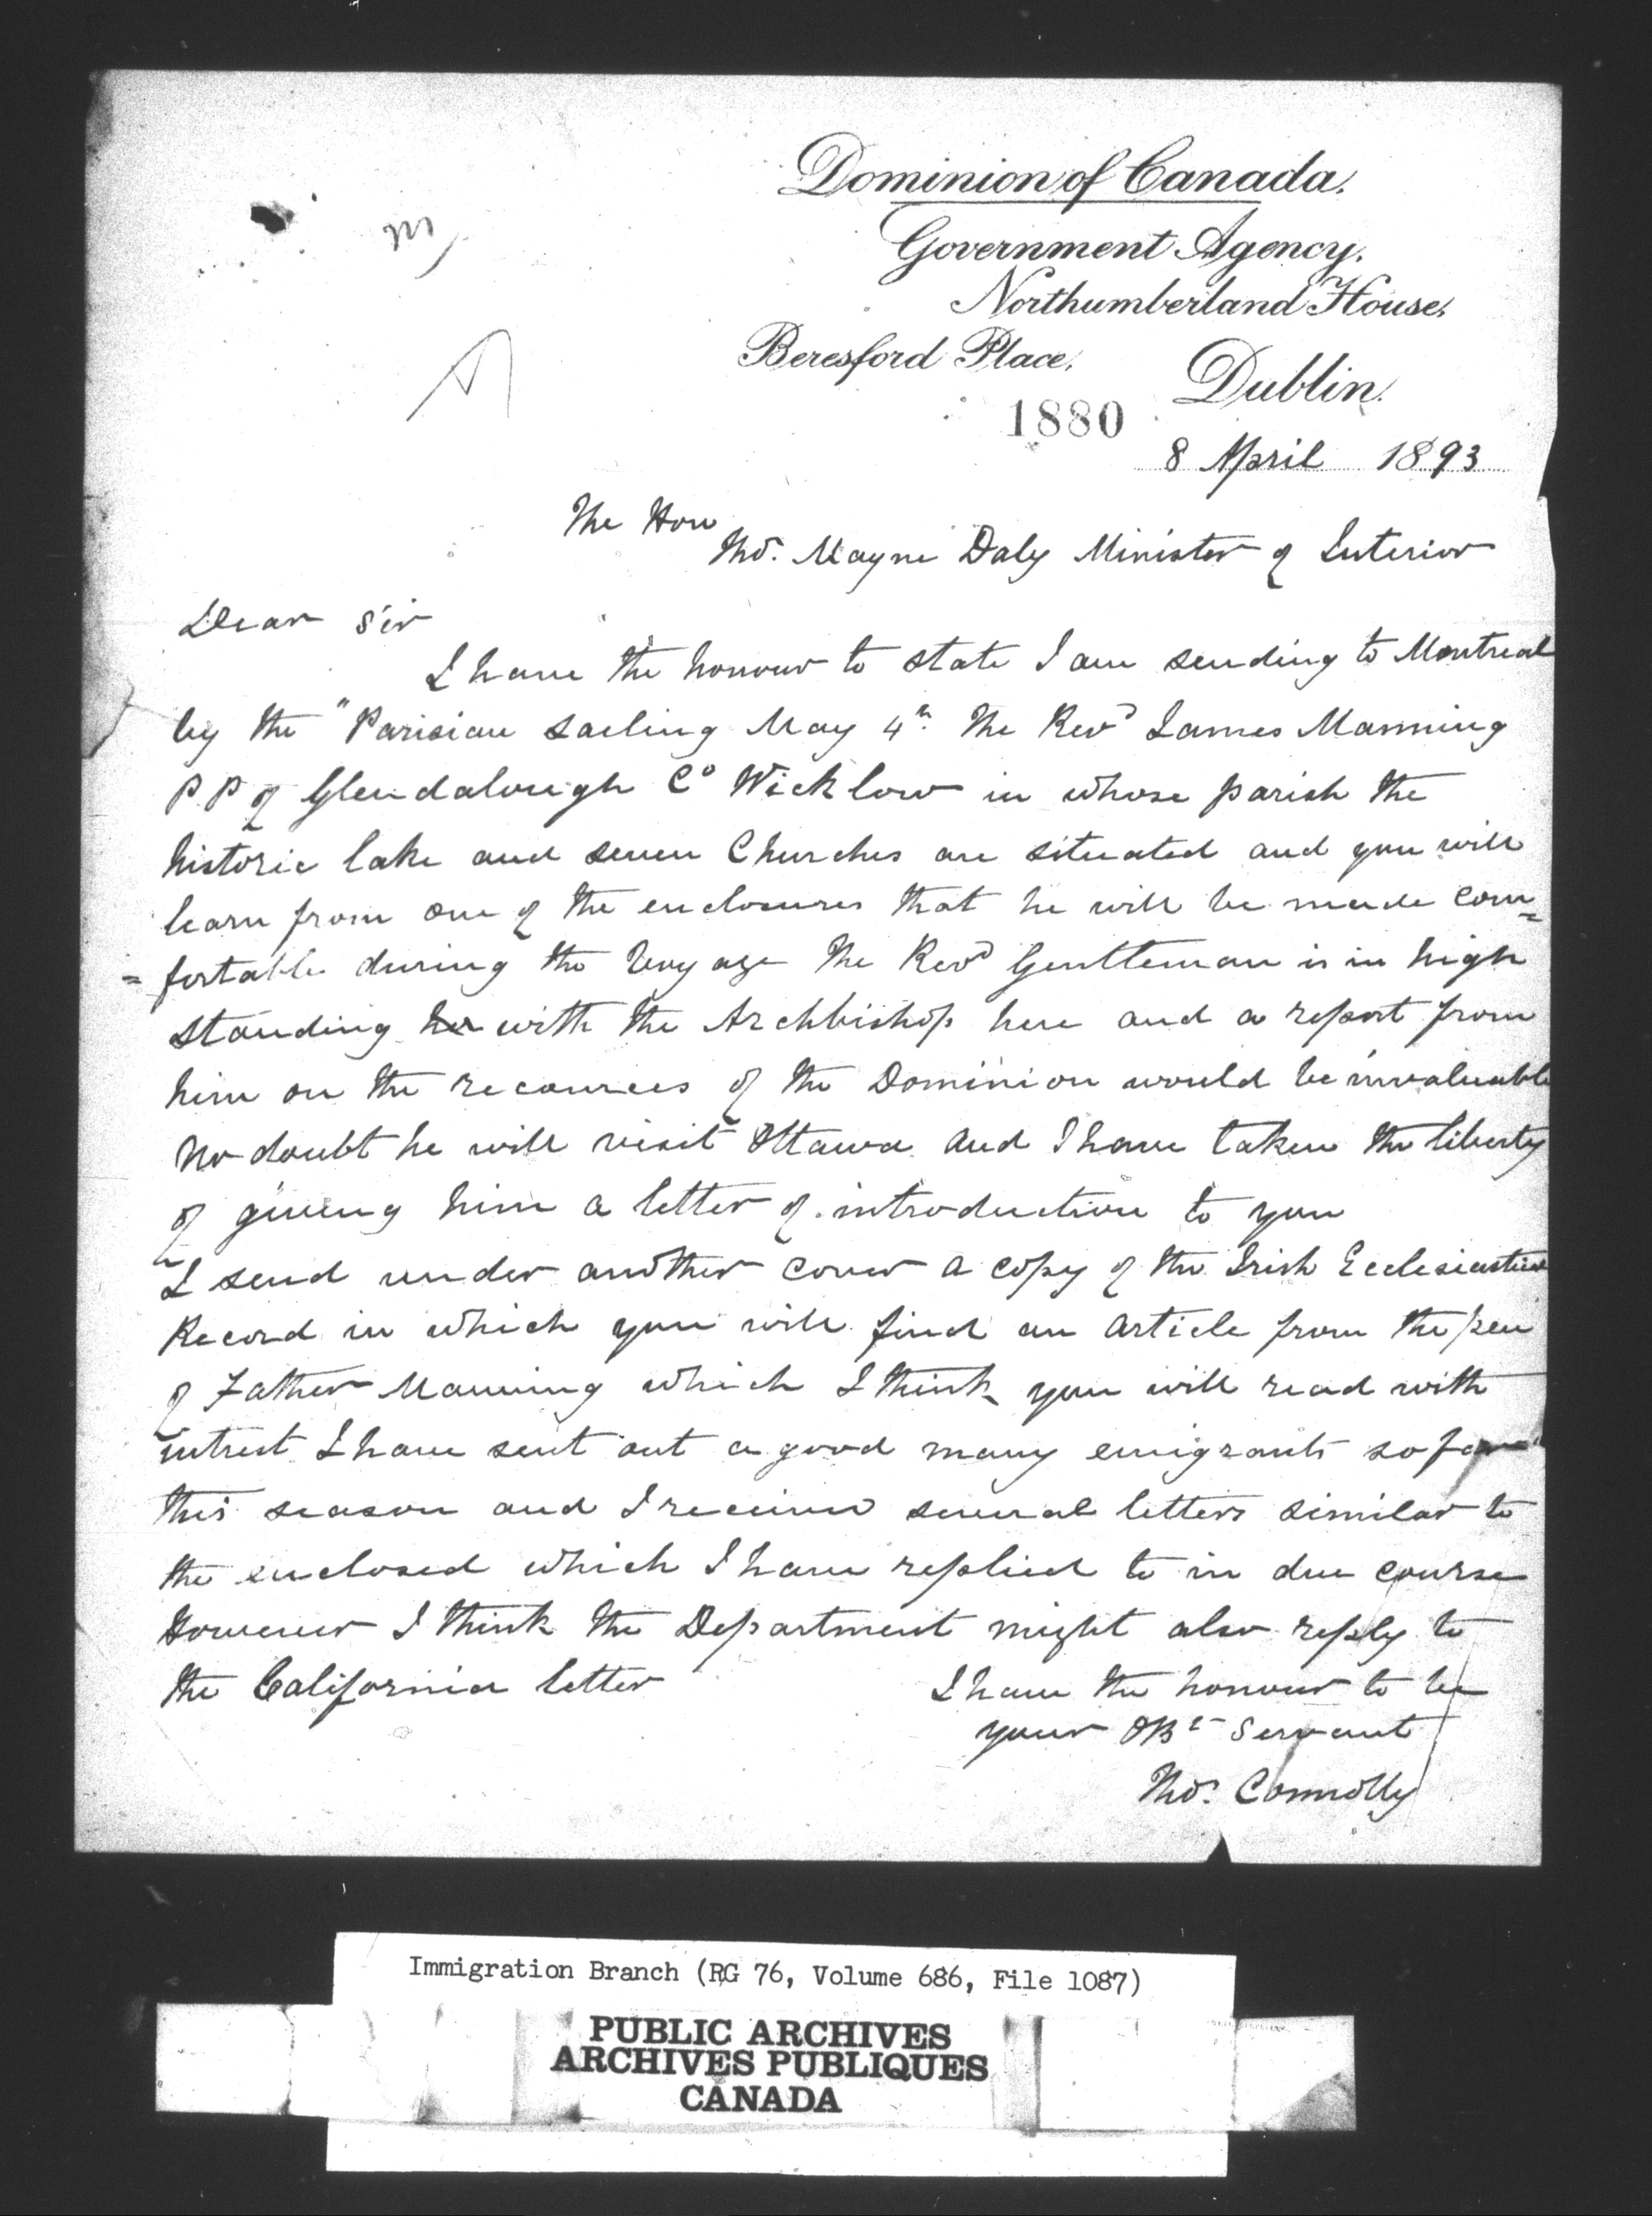 Dominion of Canada.
Government Agency,
Northumberland House,
Beresford Place,
Dublin.
1880
8 April 1893
The Hon
Thos. Mayne Daly Minister of Interior
Dear Sir
I have the honour to state I am sending to Montreal
by the "Parisian sailing May 4th. The Revd James Manning
P.P of Glendalough Co Wicklow in whose parish the
historic lake and seven Churches are situated and you will
learn from one of the enclosures that he will be made com=
=fortable during the Voyage The Revd Gentleman is in high
standing her with the Archbishop here and a report from
him on the recources of the Dominion would be invaluable
No doubt he will visit Ottawa and I have taken the liberty
of giving him a letter of introduction to you
I send under another cover a copy of the Irish Ecclesiastical
Record in which you will find an Article from the pen
of Father Manning which I think you will read with
intrest I have sent out a good many emigrants so far
this season and I receive several letters similar to
the enclosed which I have replied to in due course
However I think the Department might also reply to
the California letter
I have the honour to be
your Obt Servant
Thos. Connolly
Immigration Branch (RG 76, Volume 686, File 1087)
PUBLIC ARCHIVES
ARCHIVES PUBLIQUES
CANADA